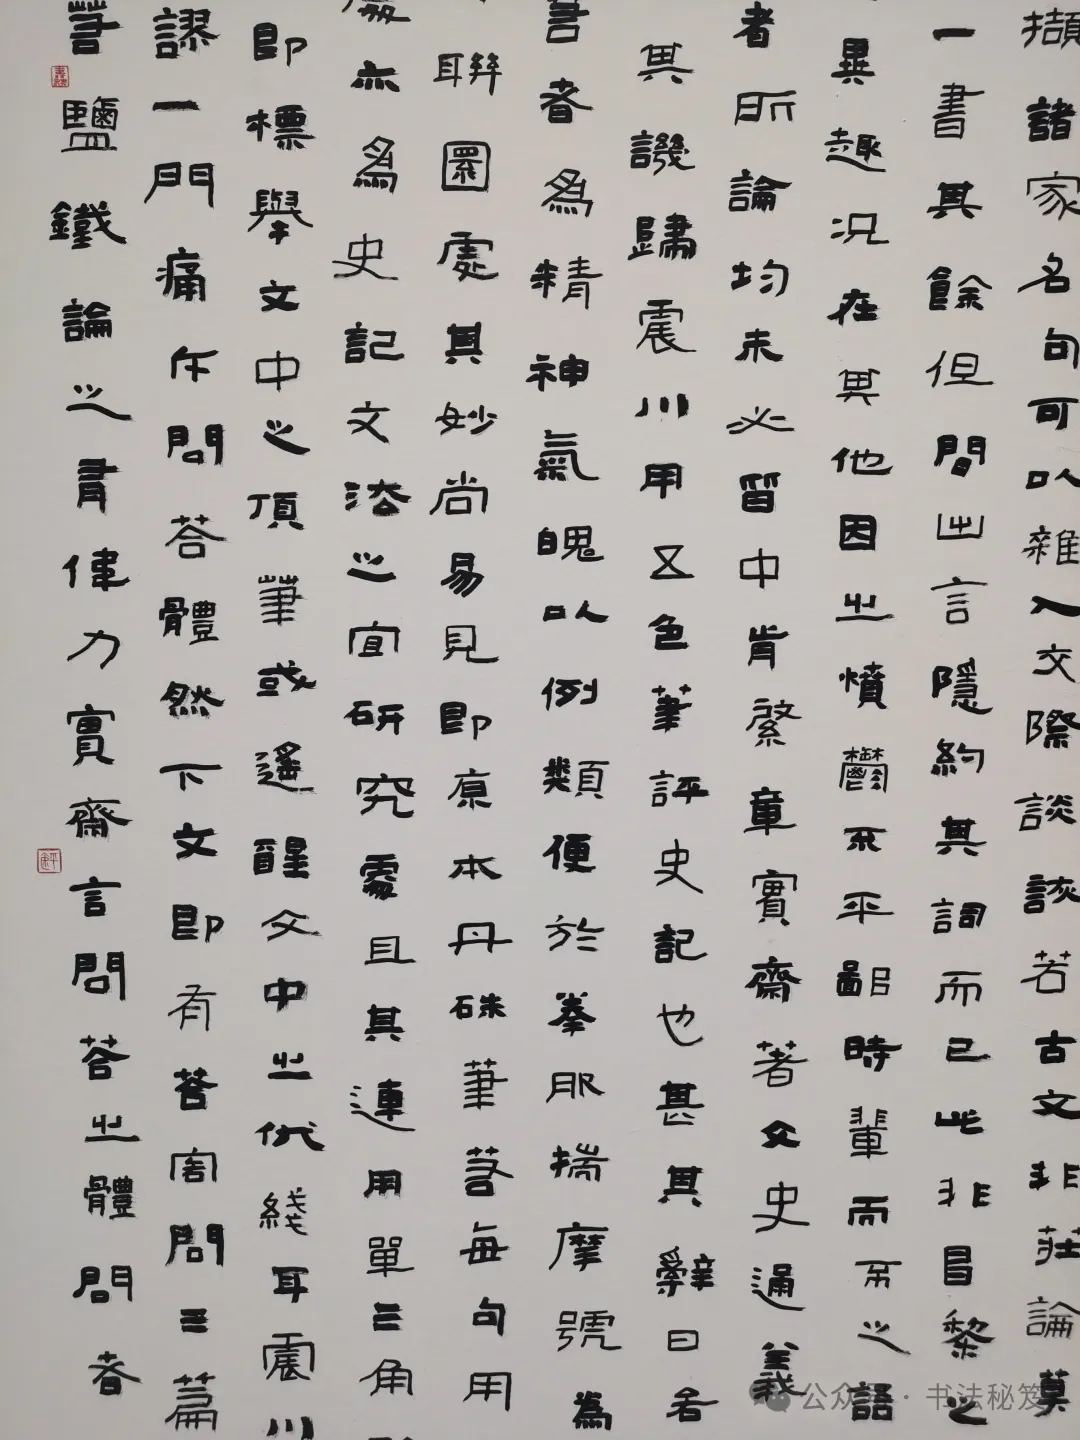 擷諸家名句可以雜入交際談談若古文非莊論莫
一書其餘但間出言隱約其詞而已此非冒黎之
異趣況在其他因之憤鬱不平鄙時輩而不之語
者所論均未必皆中肯綮章實齋著文史通義
其譏歸震川用五色筆評史記也甚其辭曰名
者為精神氣魄以例類便於拳服揣摩號為
聯圈處其妙尚易見即原本丹硃筆若每句用
處亦為史記文洽之宜研究處且其連用單三角
即標舉文中之頂筆或遙醒文中之伏綫耳震川
謬一門痛斥問荅體然下文即有荅客問三篇
鹽鐵論之健力實齋言問荅之體問者
公众号·书法秘笈